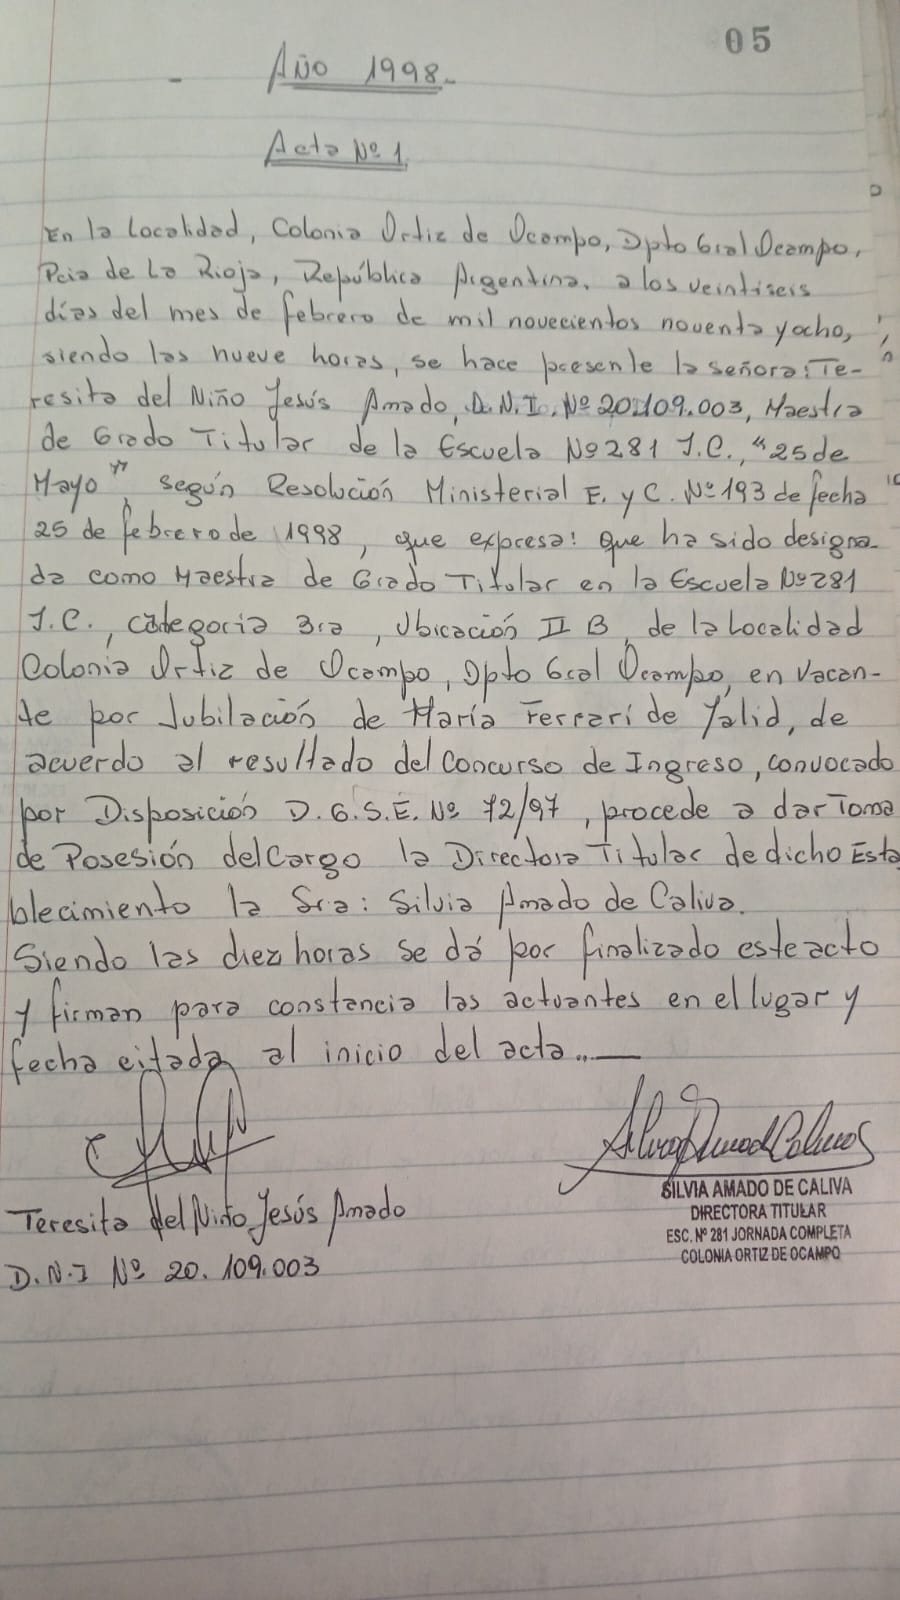 05
Año 1998.-
Acta Nº 1.
En la Localidad, Colonia Ortiz de Ocampo, Dpto Gral Ocampo,
Pcia de La Rioja, República Argentina, a los veintiseis
días del mes de febrero de mil novecientos noventa y ocho,
siendo las nueve horas, se hace presente la señora: Te-
resita del Niño Jesús Amado, D.N.I. Nº 20.109.003, Maestra
de Grado Titular de la Escuela Nº 281 J.C., "25 de
Mayo", según Resolución Ministerial E. y C. Nº 193 de fecha
25 de febrero de 1998, que expresa: que ha sido designa-
da como Maestra de Grado Titular en la Escuela Nº 281
J.C., categoria 3ra, Ubicación II B, de la Localidad
Colonia Ortiz de Ocampo, Dpto Gral Ocampo, en Vacan-
te por Jubilación de María Ferrari de Yalid, de
acuerdo al resultado del Concurso de Ingreso, convocado
por Disposición D.G.S.E. Nº 72/97, procede a dar Toma
de Posesión del Cargo la Directora Titular de dicho Esta
blecimiento la Sra: Silvia Amado de Caliva.
Siendo las diez horas se dá por finalizado este acto
y firman para constancia las actuantes en el lugar y
fecha citada al inicio del acta..—
Teresita del Niño Jesús Amado
D.N.I Nº 20.109.003
Silvia Amado de Caliva
SILVIA AMADO DE CALIVA
DIRECTORA TITULAR
ESC. Nº 281 JORNADA COMPLETA
COLONIA ORTIZ DE OCAMPO